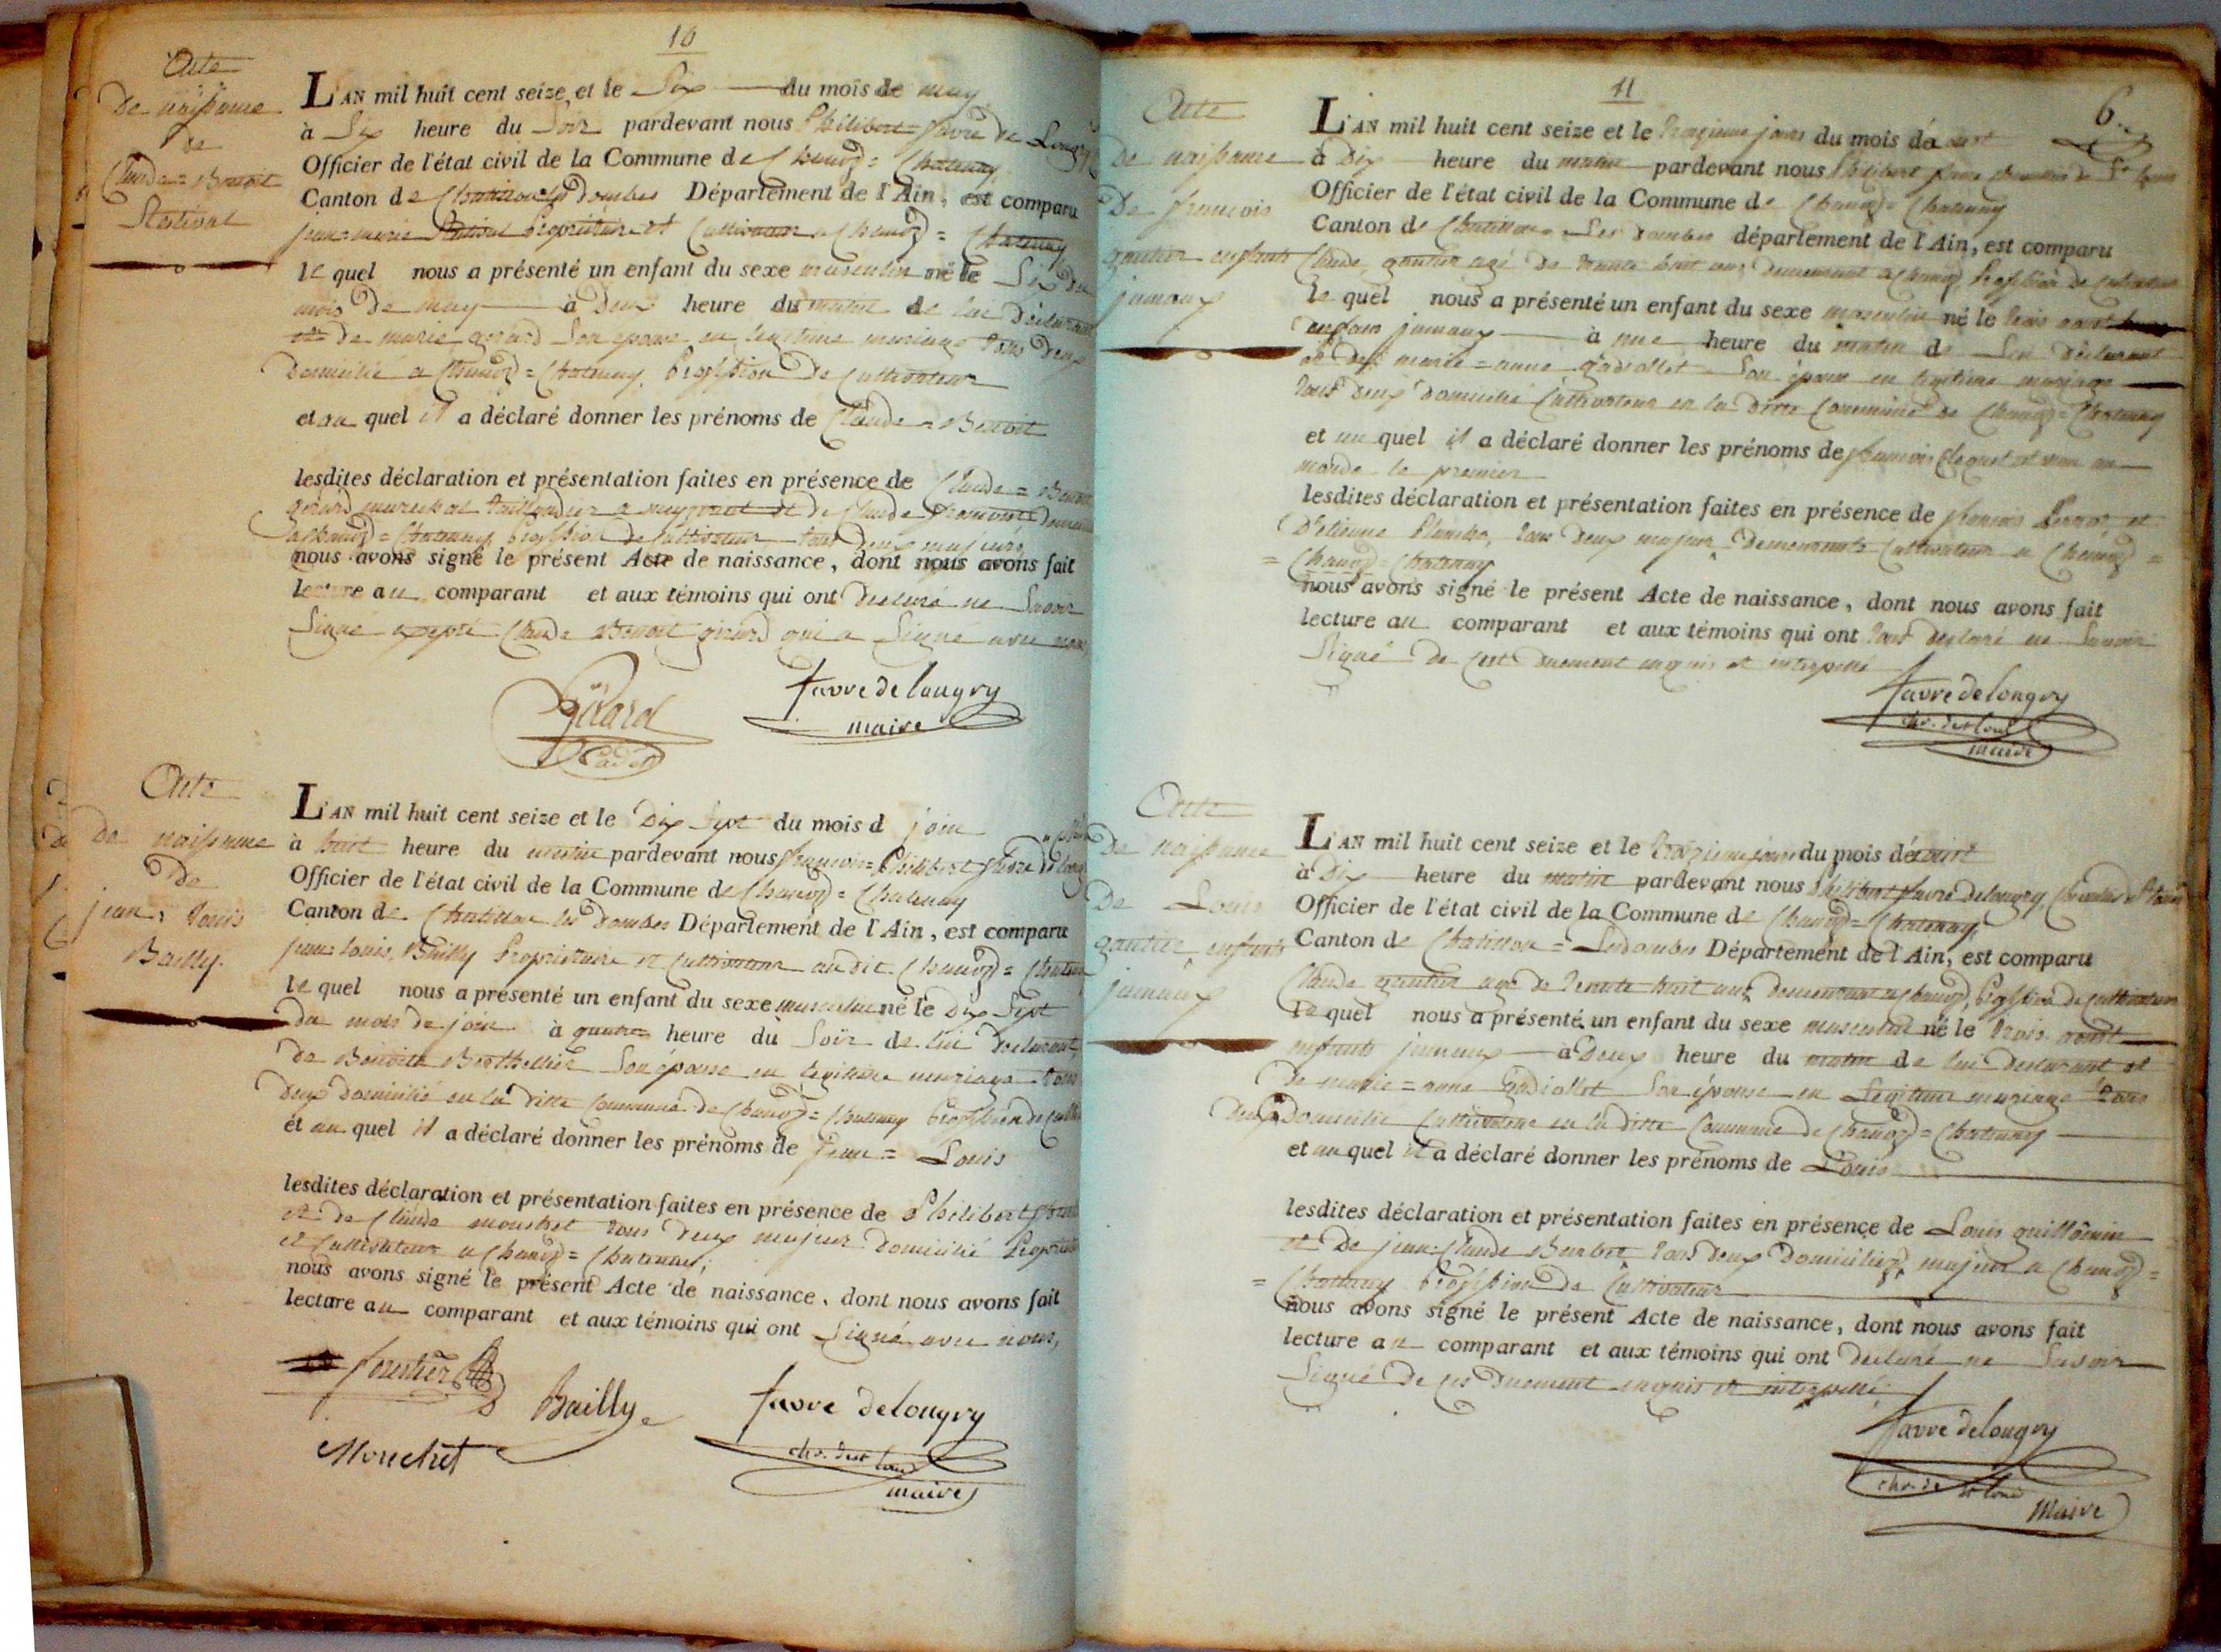 10
Acte
De naissance
de
Claude = Benoit
Statival
L'AN mil huit cent seize et le Six du mois de may
à Six heure du Soir pardevant nous Philibert = favre de Longry
Officier de l'état civil de la Commune de Chanoz = Chatenay
Canton de Chatillon les Dombes Département de l'Ain, est comparu
jean = marie Propriétaire et Cultivateur a Chanoz = Chatenay
le quel nous a présenté un enfant du sexe masculin né le Six du
mois De may à Deux heure du matin de lui Déclarant
et de marie girard Son épouse en legitime mariage tous deux
Domicilié a Chanoz = Chatenay, Profession De Cultivateur
et au quel il a déclaré donner les prénoms de Claude = Benoit
lesdites déclaration et présentation faites en présence de Claude = Benoit
girard marechal Taillandier a et de Claude
a Chanoz = Chatenay Profession de Cultivateur tous deux majeurs
nous avons signé le présent Acte de naissance, dont nous avons fait
lecture au comparant et aux témoins qui ont declaré ne Savoir
Signé excepté Claude Benoit girard qui a Signé avec nous
Girard
Cadet
favre de longry
maire
Acte
De naissance
De
jean, Louis
Bailly.
L'AN mil huit cent seize et le Dix Sept du mois d join
à huit heure du matin pardevant nous françois = Philibert favre de Long
Officier de l'état civil de la Commune de Chanoz = Chatenay
Canton de Chatillon les Dombes Département de l'Ain, est comparu
jean = louis, Bailly Propriétaire et Cultivateur au dit Chanoz = Chatenay
le quel nous a présenté un enfant du sexe masculin né le Dix Sept
du mois de join à quatre heure du Soir de lui declarant
de Benoite Berthellier Son épouse en legitime mariage tous
deux domicilié en la ditte Commune de Chanoz = Chatenay Profession de Cultiv
et au quel il a déclaré donner les prénoms de jean = Louis
lesdites déclaration et présentation faites en présence de Philibert
et de Claude mouchet tous deux majeur domicilié
et Cultivateur a Chanoz = Chatenay,
nous avons signé le présent Acte de naissance, dont nous avons fait
lecture au comparant et aux témoins qui ont Signé avec nous,
Bailly
favre delongry
Mouchet
chr. de st louis
maire
11
6.
Acte
De naissance
De françois
gautier enfants
jumaux
L'AN mil huit cent seize et le troizieme jours du mois dé aout
à Dix heure du matin pardevant nous Philibert favre Chevalier de St Louis
Officier de l'état civil de la Commune de Chanoz = Chatenay
Canton de Chatillon = Les Dombes département de l'Ain, est comparu
Claude, gautier agé de trente huit ans, demeurant a Chanoz Profession de Cultivateur
le quel nous a présenté un enfant du sexe masculin né le trois aout
enfans jumaux à une heure du matin de Lui Déclarant
et de marie = anne gadiollet Son épouse en legitime mariage
tous deux domicilié Cultivateur en la ditte Commune de Chanoz = Chatenay
et au quel il a déclaré donner les prénoms de françois lequel et venu au
monde le premier
lesdites déclaration et présentation faites en présence de françois et
D'etienne tous deux majeur Demeurants Cultivateur a Chanoz =
= Chanoz = Chatenay
nous avons signé le présent Acte de naissance, dont nous avons fait
lecture au comparant et aux témoins qui ont tous declaré ne Savoir
Signé de cest duement enquis et interpellé
favre de longry
chr. de st louis
maire
Acte
De naissance
De Louis
gautier, enfants
jumaux
L'AN mil huit cent seize et le troizieme jours du mois dé aout
à Dix heure du matin pardevant nous Philibert favre delongry, Chevalier de St Louis
Officier de l'état civil de la Commune de Chanoz = Chatenay
Canton de Chatillon = Lesdombes Département de l'Ain, est comparu
Claude gautier agé de trente huit ans demeurant a Chanoz, Profession de Cultivateur
le quel nous a présenté un enfant du sexe masculin né le trois aout
enfants jumeaux à Deux heure du matin de lui declarant et
de marie = anne gadiollet Son épouse en Legitime mariage tous
deux domicilié Cultivateur en la ditte Commune de Chanoz = Chatenay
et au quel il a déclaré donner les prénoms de Louis
lesdites déclaration et présentation faites en présence de Louis guillomin
et De jean = Claude Barbet tous deux Domiciliez, majeur a Chanoz =
= Chatenay Profession de Cultivateur
nous avons signé le présent Acte de naissance, dont nous avons fait
lecture au comparant et aux témoins qui ont declaré ne Savoir
Signé De ces Duement enquis et interpellé,
favre delongry
chr. de st louis
Maire